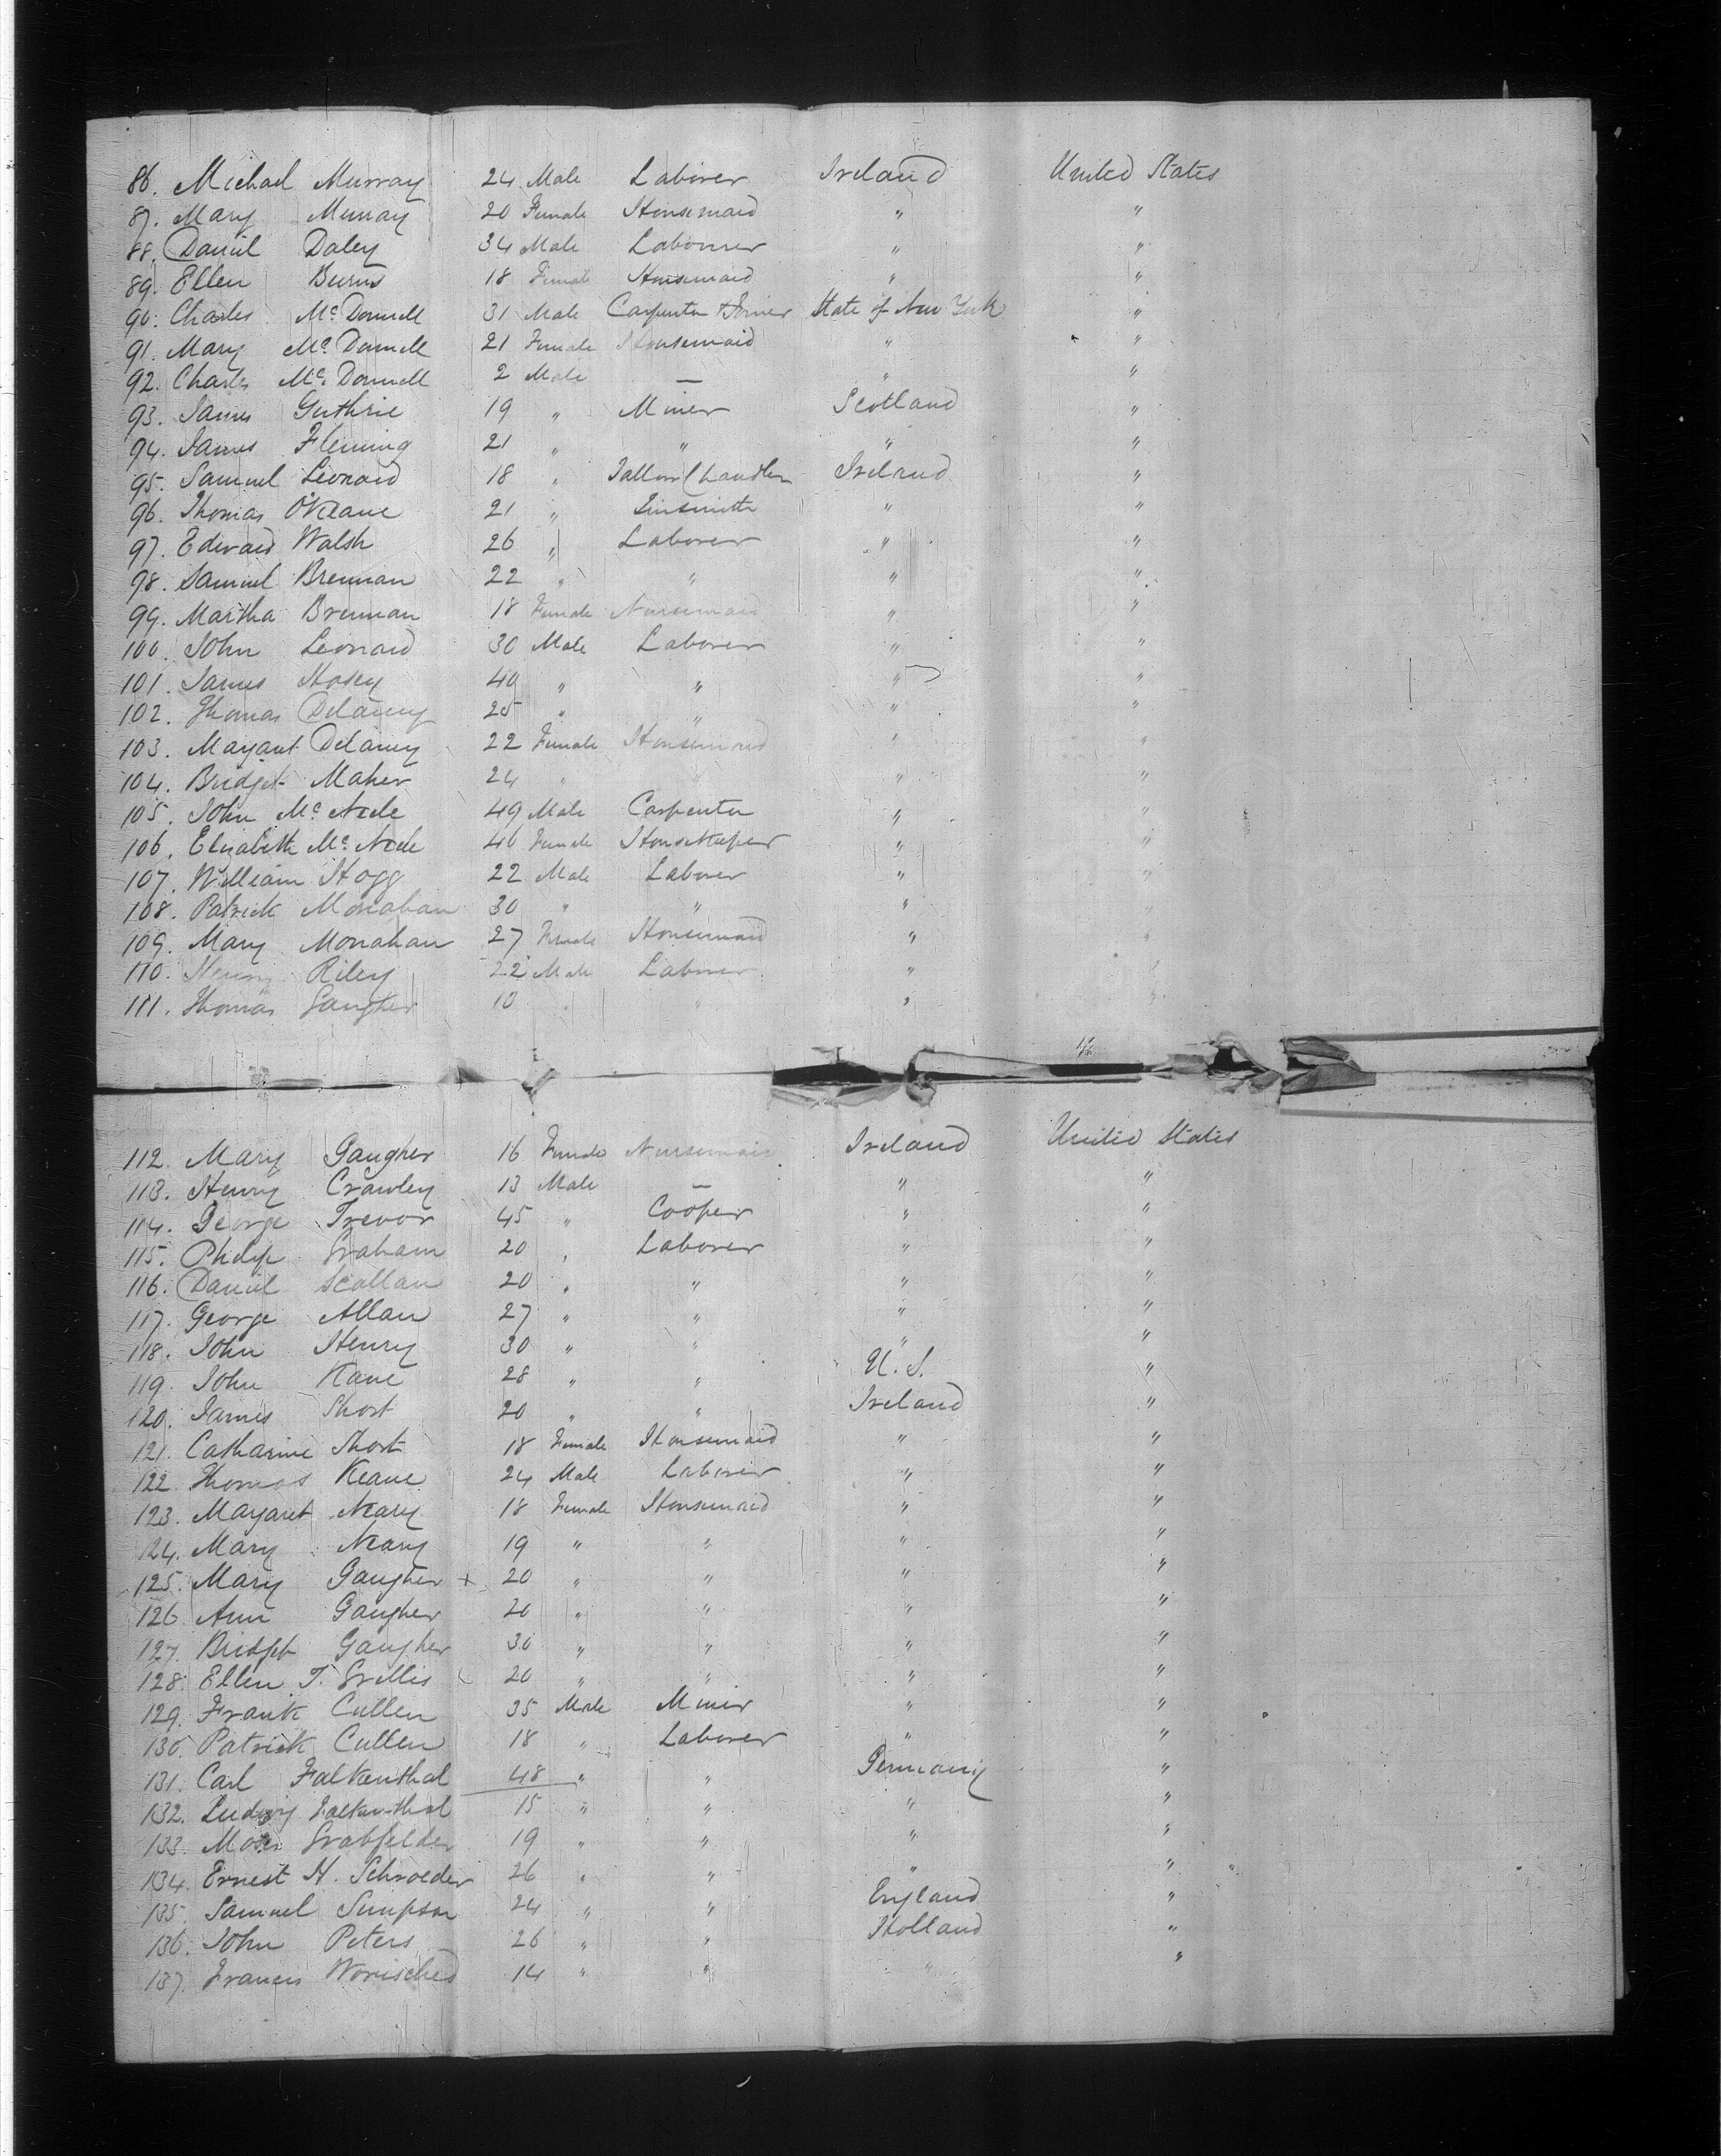 86. Michael Murray 24 Male Laborer Ireland United States
87. Mary Murray 20 Female Housemaid " "
88. Daniel Daley 34 Male Labourer " "
89. Ellen Burns 18 Female Housemaid " "
90. Charles Mc Donnell 31 Male Carpenter & Joiner State of New York "
91. Mary Mc Donnell 21 Female Housemaid " "
92. Charles Mc Donnell 2 Male — " "
93. James Guthrie 19 " Miner Scotland "
94. James Fleming 21 " " " "
95. Samuel Leonard 18 " Tallow Chandler Ireland "
96. Thomas O'Keane 21 " Tinsmith " "
97. Edward Walsh 26 " Laborer " "
98. Samuel Brennan 22 " " " "
99. Martha Brennan 18 Female Nursemaid " "
100. John Leonard 30 Male Laborer " "
101. James Hosey 40 " " " "
102. Thomas Delaney 25 " " " "
103. Margaret Delaney 22 Female Housemaid " "
104. Bridget Maher 24 " " " "
105. John Mc Neele 49 Male Carpenter " "
106. Elizabeth Mc Neele 46 Female Housekeeper " "
107. William Hogg 22 Male Laborer " "
108. Patrick Monahan 30 " " " "
109. Mary Monahan 27 Female Housemaid " "
110. Henry Riley 22 Male Laborer " "
111. Thomas Gaugher 10 " " " "
112. Mary Gaugher 16 Female Nursemaid Ireland United States
113. Henry Crawley 13 Male — " "
114. George Trevor 45 " Cooper " "
115. Philip Graham 20 " Laborer " "
116. Daniel Scallan 20 " " " "
117. George Allan 27 " " " "
118. John Henry 30 " " " "
119. John Kane 28 " " U.S. "
120. James Short 20 " " Ireland "
121. Catharine Short 18 Female Housemaid " "
122. Thomas Keane 24 Male Laborer " "
123. Margaret Neary 18 Female Housemaid " "
124. Mary Neary 19 " " " "
125. Mary Gaugher + 20 " " " "
126. Ann Gaugher 20 " " " "
127. Bridget Gaugher 30 " " " "
128. Ellen T. Grellis 20 " " " "
129. Frank Cullen 35 Male Miner " "
130. Patrick Cullen 18 " Laborer " "
131. Carl Falkenthal 48 " " Germany "
132. Ludwig Falkenthal 15 " " " "
133. Moses Grabfelder 19 " " " "
134. Ernest H. Schroeder 26 " " " "
135. Samuel Simpson 24 " " England "
136. John Peters 26 " " Holland "
137. Francis 14 " " " "